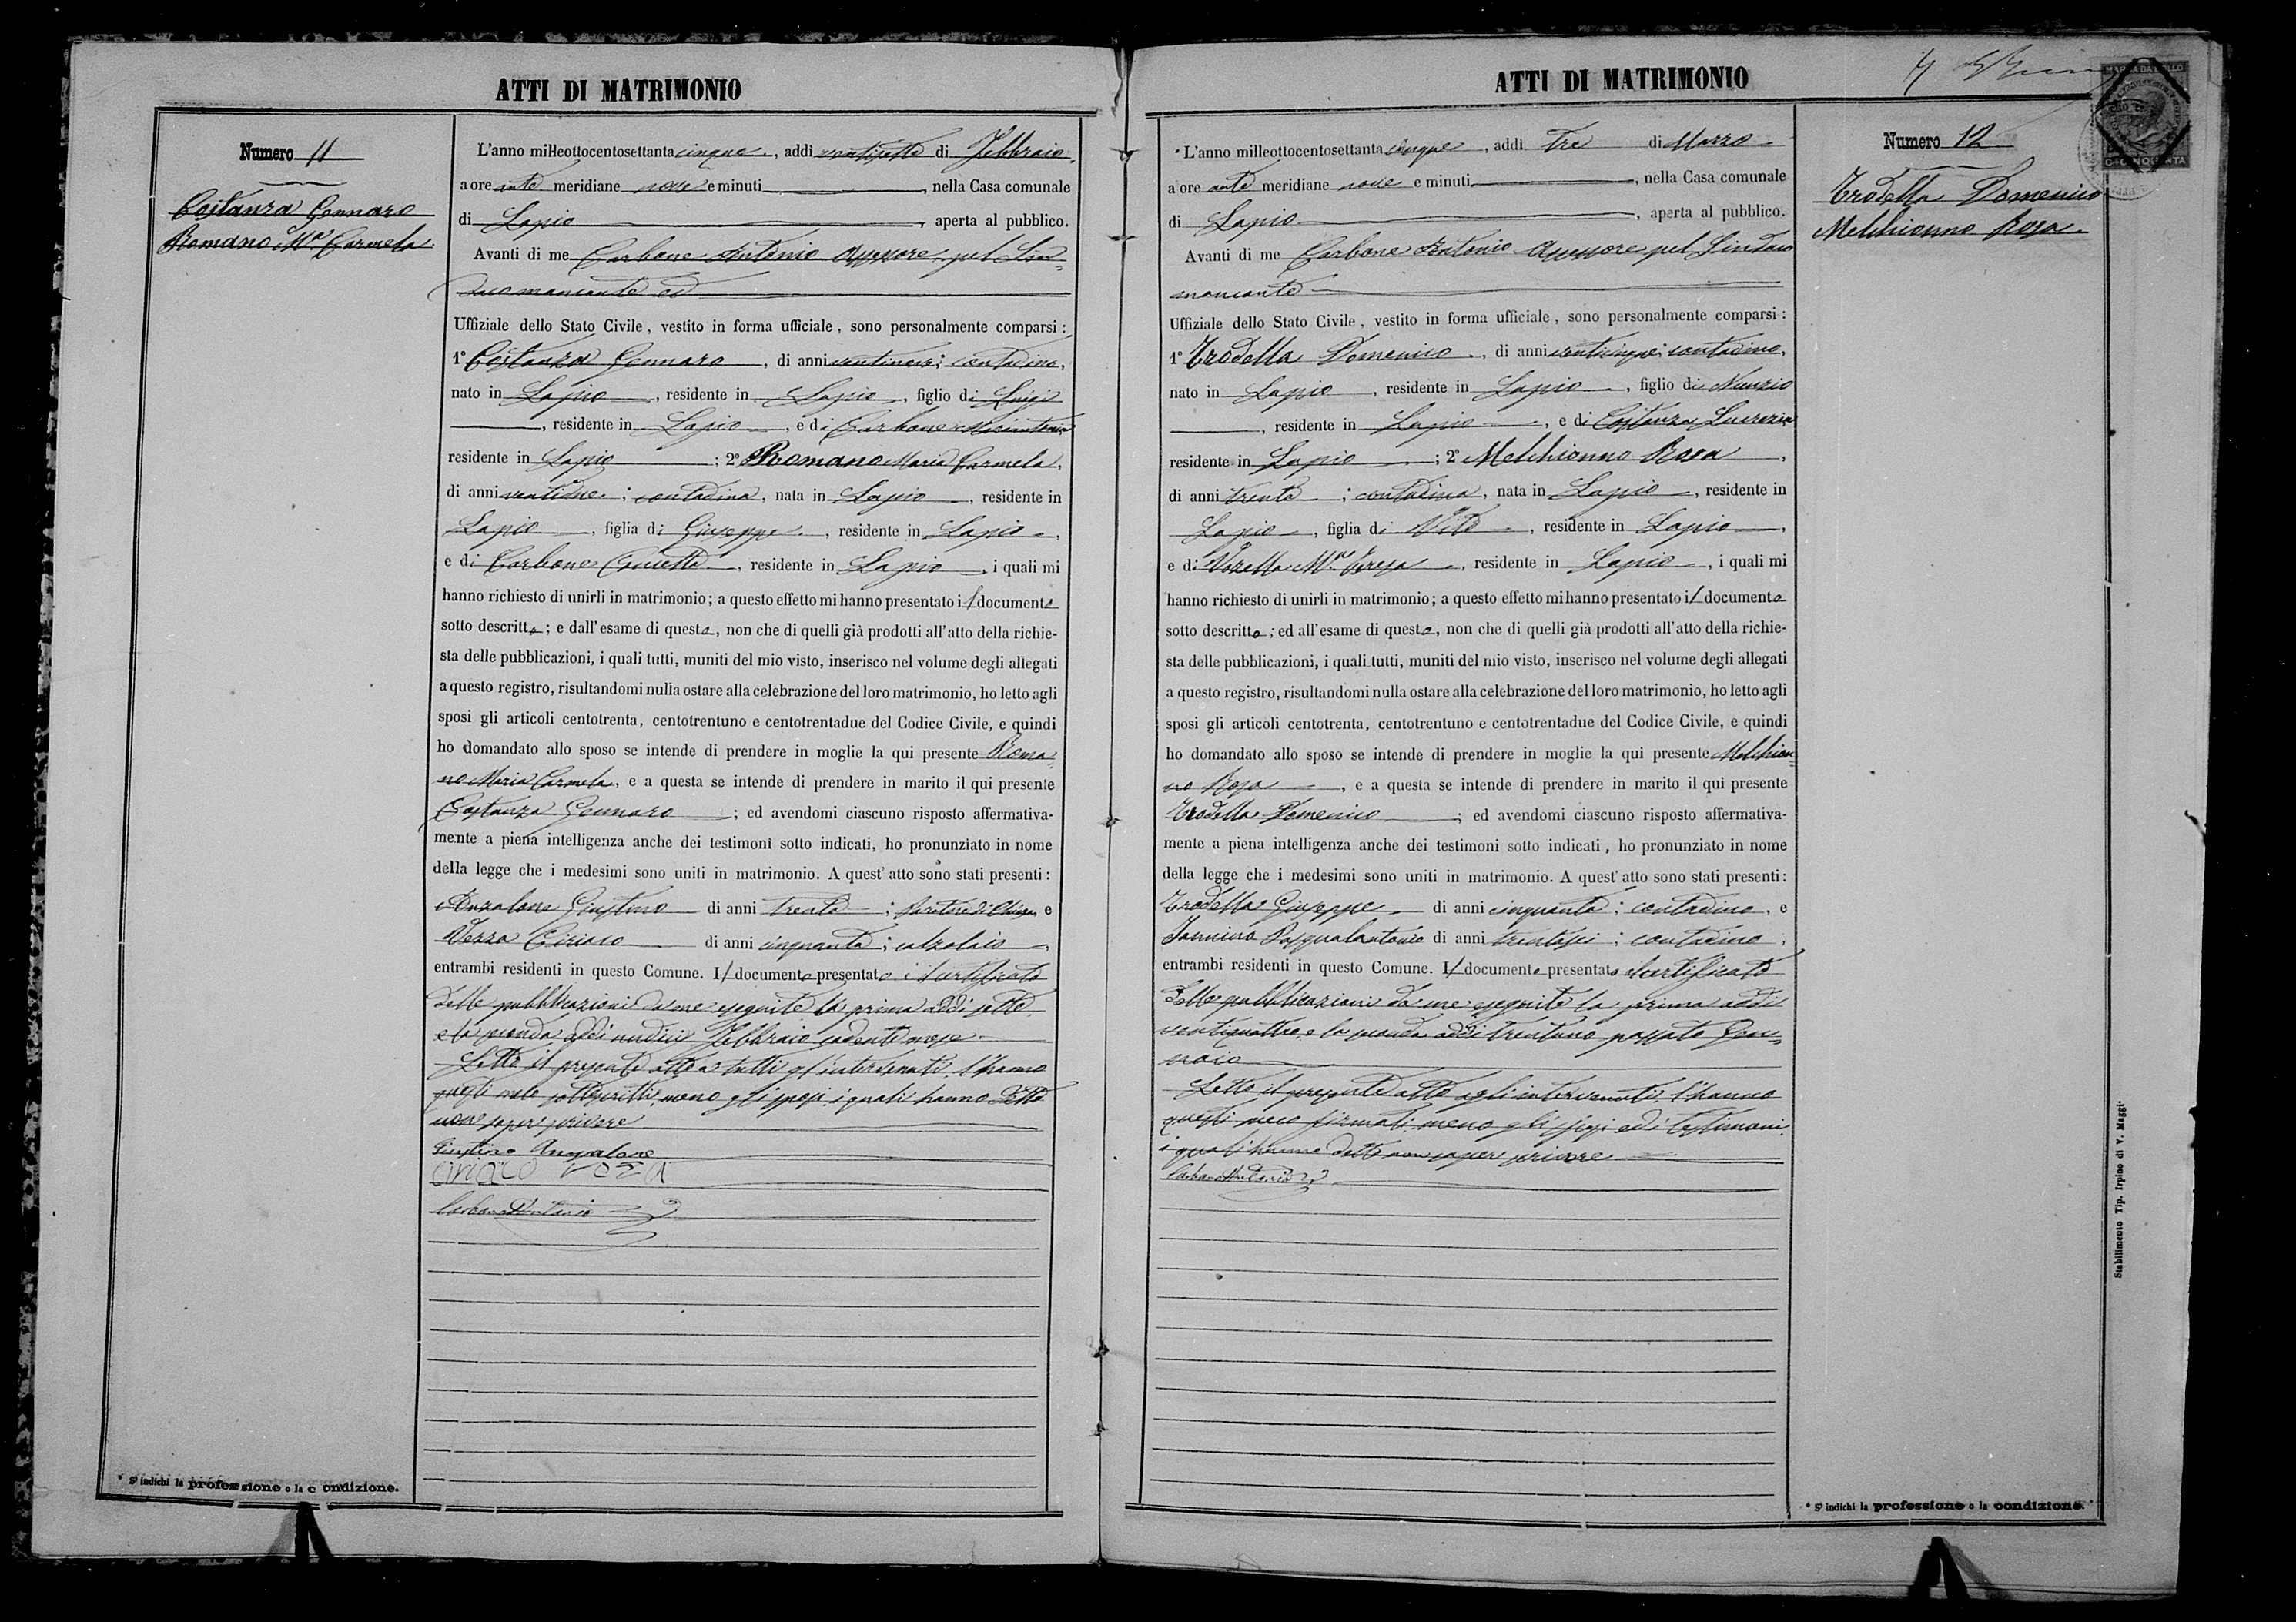 ATTI DI MATRIMONIO
Numero 11
Costanza Gennaro
Romano Mª Carmela
L'anno milleottocentosettanta cinque, addì ventisette di Febbraio,
a ore ante meridiane nove e minuti, nella Casa comunale
di Lapio, aperta al pubblico.
Avanti di me Carbone Antonio Assessore pel Sin=
daco mancante ed
Uffiziale dello Stato Civile, vestito in forma ufficiale, sono personalmente comparsi:
1º Costanza Gennaro, di anni; contadino,
nato in Lapio, residente in Lapio, figlio di Luigi
, residente in Lapio, e di Carbone
residente in Lapio; 2º Romano Maria Carmela,
di anni ventidue; contadina, nata in Lapio, residente in
Lapio, figlia di Giuseppe, residente in Lapio,
e di Carbone, residente in Lapio, i quali mi
hanno richiesto di unirli in matrimonio; a questo effetto mi hanno presentato il documento
sotto descritto; e dall'esame di questo, non che di quelli già prodotti all'atto della richie-
sta delle pubblicazioni, i quali tutti, muniti del mio visto, inserisco nel volume degli allegati
a questo registro, risultandomi nulla ostare alla celebrazione del loro matrimonio, ho letto agli
sposi gli articoli centotrenta, centotrentuno e centotrentadue del Codice Civile, e quindi
ho domandato allo sposo se intende di prendere in moglie la qui presente Roma=
no Maria Carmela, e a questa se intende di prendere in marito il qui presente
Costanza Gennaro; ed avendomi ciascuno risposto affermativa-
mente a piena intelligenza anche dei testimoni sotto indicati, ho pronunziato in nome
della legge che i medesimi sono uniti in matrimonio. A quest'atto sono stati presenti:
Anzalone Giustino di anni trenta;, e
Vozza Ciriaco di anni cinquanta; calzolaio,
entrambi residenti in questo Comune. Il documento presentato è il certificato
delle pubblicazioni da me eseguite la prima addì sette
e la seconda addì undici Febbraio cadente mese
Letto il presente atto a tutti gl'intervenuti l'hanno
questi meco sottoscritti meno gli sposi i quali hanno detto
non saper scrivere
Giustino Anzalone
Ciriaco Vozza
Carbone Antonio
* S'indichi la professione o la condizione.
ATTI DI MATRIMONIO
MARCA DA BOLLO
Numero 12
Trodella Domenico
Melchionno Rosa
* L'anno milleottocentosettanta cinque, addì tre di Marzo
a ore ante meridiane nove e minuti, nella Casa comunale
di Lapio, aperta al pubblico.
Avanti di me Carbone Antonio Assessore pel Sindaco
mancante
Uffiziale dello Stato Civile, vestito in forma ufficiale, sono personalmente comparsi:
1º Trodella Domenico, di anni venticinque; contadino,
nato in Lapio, residente in Lapio, figlio di Nunzio
, residente in Lapio, e di Costanza Lucrezia
residente in Lapio; 2º Melchionno Rosa,
di anni trenta; contadina, nata in Lapio, residente in
Lapio, figlia di Vito, residente in Lapio,
e di Vozella Mª Teresa, residente in Lapio, i quali mi
hanno richiesto di unirli in matrimonio; a questo effetto mi hanno presentato il documento
sotto descritto; ed all'esame di questo, non che di quelli già prodotti all'atto della richie-
sta delle pubblicazioni, i quali tutti, muniti del mio visto, inserisco nel volume degli allegati
a questo registro, risultandomi nulla ostare alla celebrazione del loro matrimonio, ho letto agli
sposi gli articoli centotrenta, centotrentuno e centotrentadue del Codice Civile, e quindi
ho domandato allo sposo se intende di prendere in moglie la qui presente Melchion=
no Rosa, e a questa se intende di prendere in marito il qui presente
Trodella Domenico; ed avendomi ciascuno risposto affermativa-
mente a piena intelligenza anche dei testimoni sotto indicati, ho pronunziato in nome
della legge che i medesimi sono uniti in matrimonio. A quest'atto sono stati presenti:
Trodella Giuseppe di anni cinquanta; contadino, e
Jannino Pasqualantonio di anni trentasei; contadino,
entrambi residenti in questo Comune. Il documento presentato è il certificato
delle pubblicazioni da me eseguite la prima addì
ventiquattro, e la seconda addì trentuno passato Gen=
naio
Letto il presente atto agli intervenuti, l'hanno
questi meco firmato, meno gli sposi ed i testimoni
i quali hanno detto non saper scrivere
Carbone Antonio
* S'indichi la professione o la condizione.
Stabilimento Tip. Irpino di V. Maggi